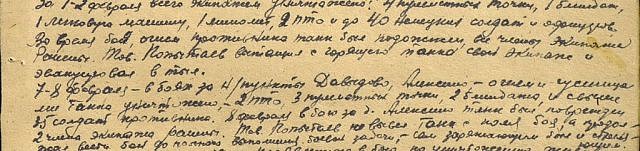 За 1-2 февраля всего экипажем уничтожено: 4 пулеметных точки, 1 блиндаж,
1 легковую машину, 1 миномет, 2 пто и до 40 немецких солдат и офицеров.
Во время боя, огнем противника танк был подожжен все члены экипажа
ранены. Тов. Копытаев вытащил с горящего танка свой экипаж и
эвакуировал в тыл.
7-8 февраля - в боях за н/пункты Давыдово, Алексино - огнем и гусеница
ми танка уничтожено - 2 пто, 3 пулеметных точки, 2 блиндажа и свыше
35 солдат противника. 8 февраля в бою за д. Алексино танк был поврежден
2 члена экипажа ранены. Тов. Копытаев не вывел танк с поля боя, а продол
жал вести бой до полного выполнения боевой задачи, сам заряжающим был и стрелял